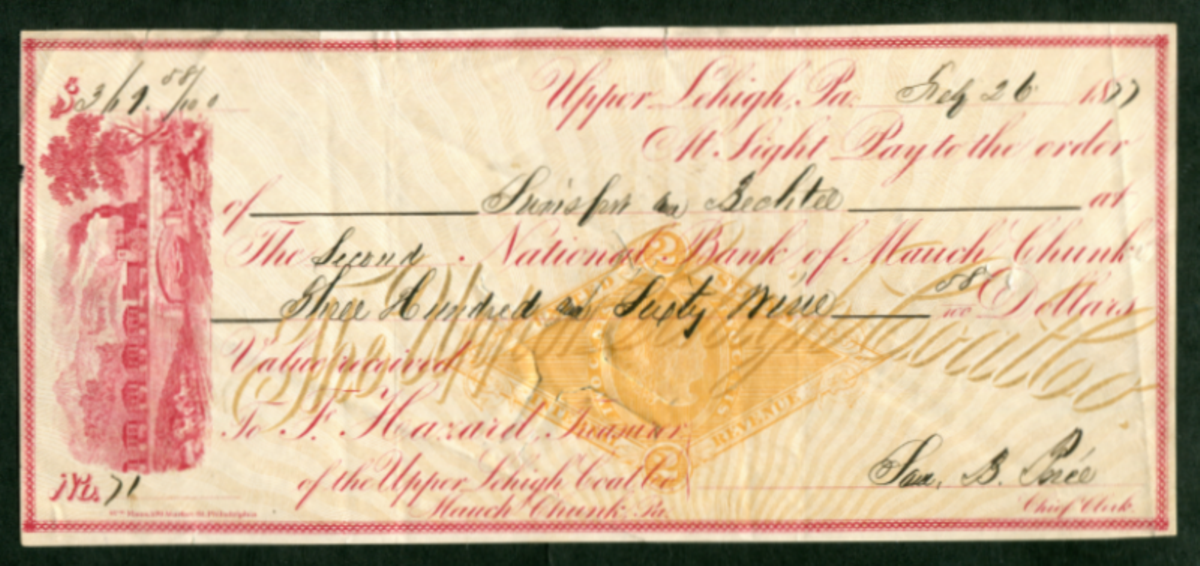 $369.58/100 Upper Lehigh, Pa. Feb 26 1877
At Sight Pay to the order
of and Bechtel at
The Second National Bank of Mauch Chunk
Three Hundred and Sixty Nine 58/100 Dollars
The Upper Lehigh Coal Co
Value received
To F. Hazard, Treasurer
REVENUE
of the Upper Lehigh Coal Co.
Sam. B. Price
No. 71
Mauch Chunk, Pa.
Chief Clerk.
Philadelphia